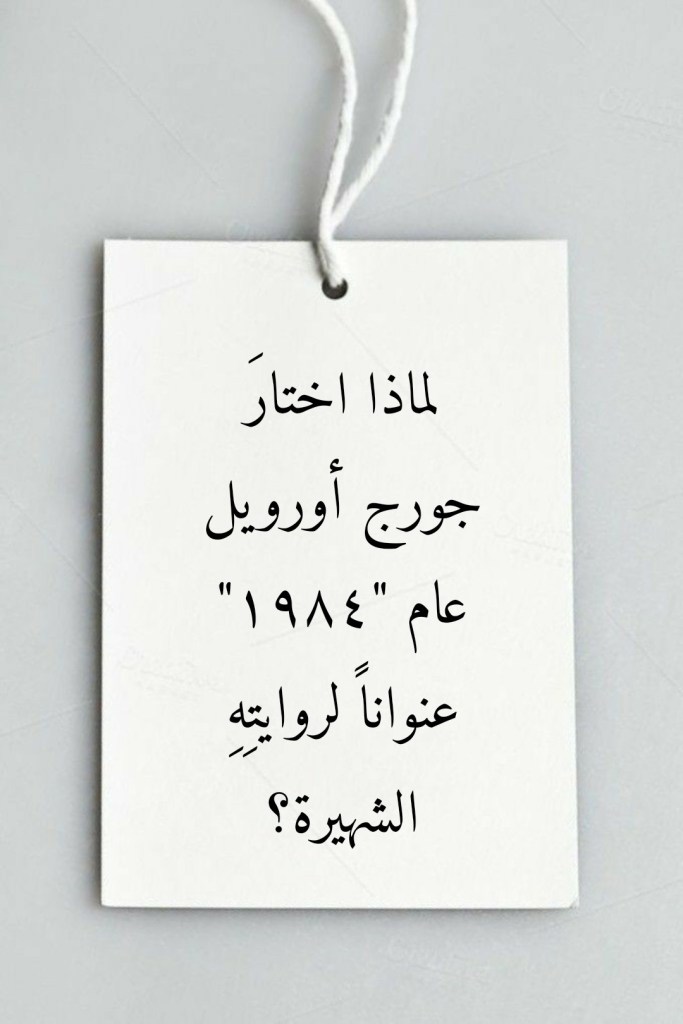 لماذا اختارَ
جورج أورويل
عام "١٩٨٤"
عنواناً لروايتِهِ
الشهيرة؟